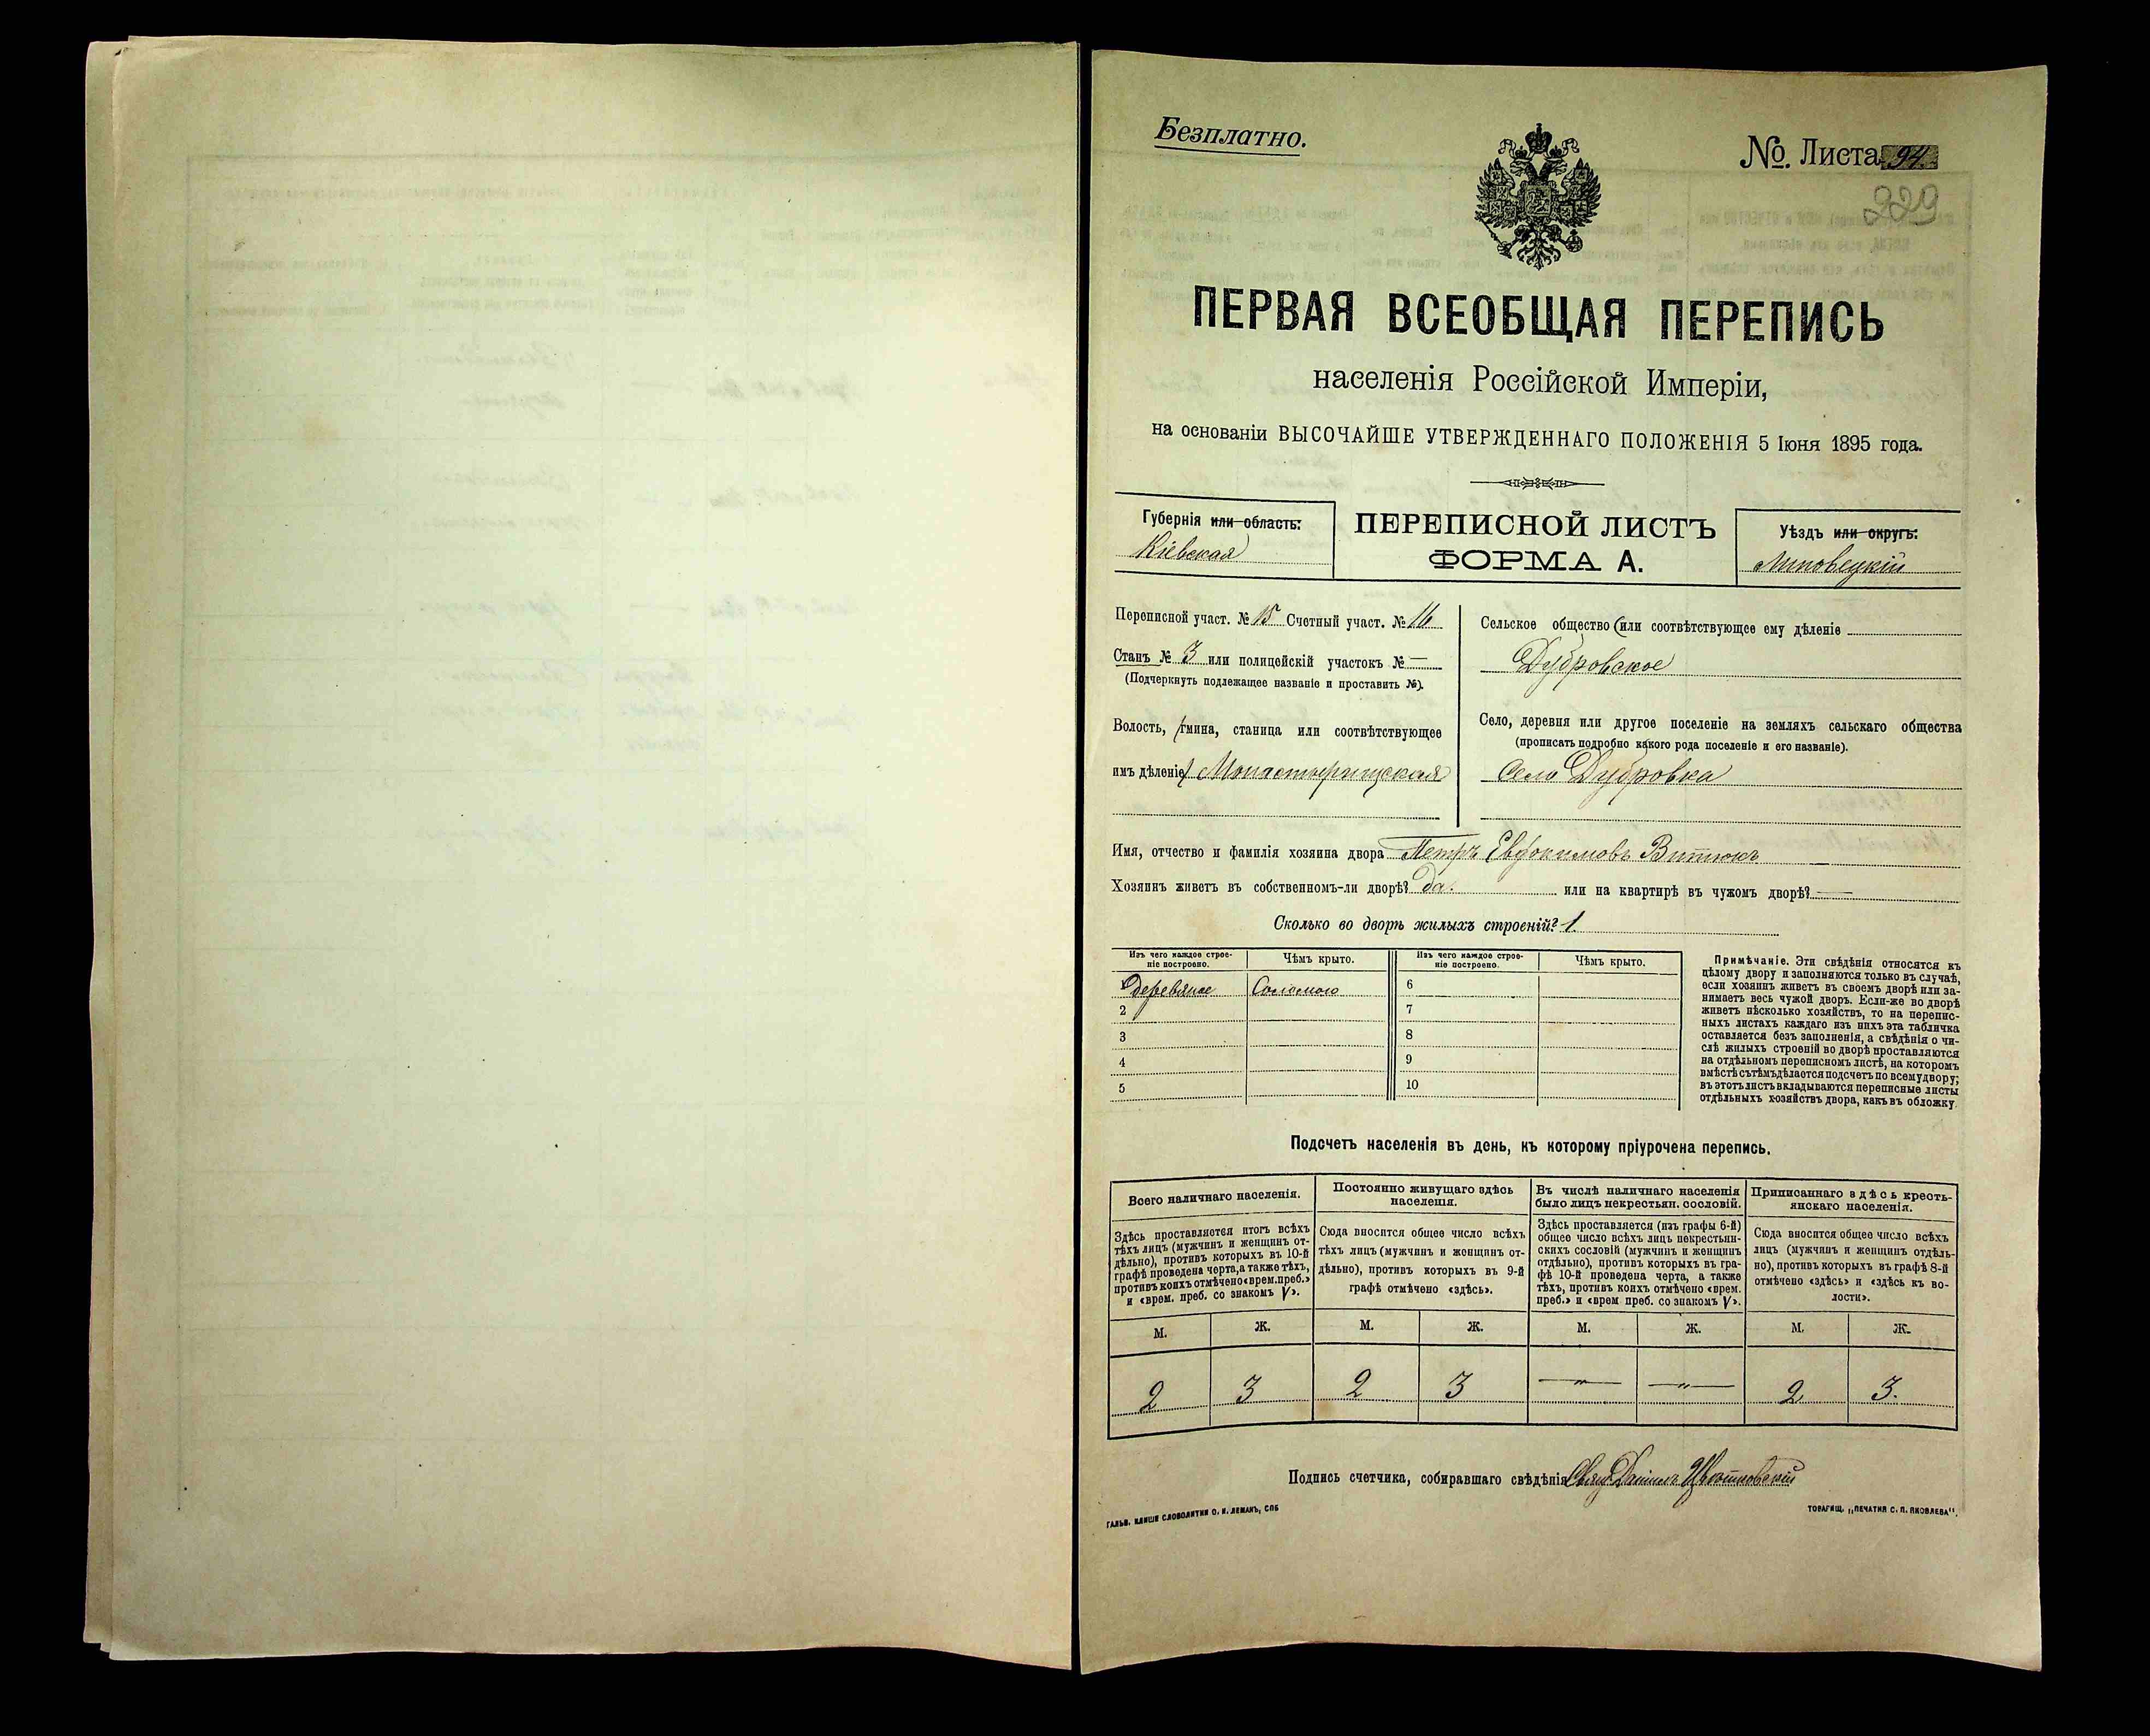 Безплатно.
№. Листа 94.
229
ПЕРВАЯ ВСЕОБЩАЯ ПЕРЕПИСЬ
населенія Россійской Имперіи,
на основаніи ВЫСОЧАЙШЕ УТВЕРЖДЕННАГО ПОЛОЖЕНІЯ 5 Іюня 1895 года.
Губернія или область:
Кіевская
ПЕРЕПИСНОЙ ЛИСТЪ
ФОРМА А.
Уѣздъ или округъ:
Липовецкій
Переписной участ. № 15 Счетный участ. № 16
Станъ № 3 или полицейскій участокъ № —
(Подчеркнуть подлежащее названіе и проставить №).
Волость, (гмина, станица или соотвѣтствующее
имъ дѣленіе) Монастырищская
Сельское общество (или соотвѣтствующее ему дѣленіе
Дубровское
Село, деревня или другое поселеніе на земляхъ сельскаго общества
(прописать подробно какого рода поселеніе и его названіе).
Село Дубровка
Имя, отчество и фамилія хозяина двора Петръ Евдокимовъ Витюкъ
Хозяинъ живетъ въ собственномъ-ли дворѣ? да. или на квартирѣ въ чужомъ дворѣ? —
Сколько во дворѣ жилыхъ строеній? 1
Изъ чего каждое строе-
ніе построено.
Чѣмъ крыто.
Изъ чего каждое строе-
ніе построено.
Чѣмъ крыто.
1 деревяное Соломою 6
2 7
3 8
4 9
5 10
Примѣчаніе. Эти свѣдѣнія относятся къ
цѣлому двору и заполняются только въ случаѣ,
если хозяинъ живетъ въ своемъ дворѣ или за-
нимаетъ весь чужой дворъ. Если-же во дворѣ
живетъ нѣсколько хозяйствъ, то на перепис-
ныхъ листахъ каждаго изъ нихъ эта табличка
оставляется безъ заполненія, а свѣдѣнія о чи-
слѣ жилыхъ строеній во дворѣ проставляются
на отдѣльномъ переписномъ листѣ, на которомъ
вмѣстѣ съ тѣмъ дѣлается подсчетъ по всему двору;
въ этотъ листъ вкладываются переписные листы
отдѣльныхъ хозяйствъ двора, какъ въ обложку.
Подсчетъ населенія въ день, къ которому пріурочена перепись.
Всего наличнаго населенія.
Здѣсь проставляется итогъ всѣхъ
тѣхъ лицъ (мужчинъ и женщинъ от-
дѣльно), противъ которыхъ въ 10-й
графѣ проведена черта, а также тѣхъ,
противъ коихъ отмѣчено «врем. преб.»
и «врем. преб. со знакомъ V».
Постоянно живущаго здѣсь
населенія.
Сюда вносится общее число всѣхъ
тѣхъ лицъ (мужчинъ и женщинъ от-
дѣльно), противъ которыхъ въ 9-й
графѣ отмѣчено «здѣсь».
Въ числѣ наличнаго населенія
было лицъ некрестьян. сословій.
Здѣсь проставляется (изъ графы 6-й)
общее число всѣхъ лицъ некрестьян-
скихъ сословій (мужчинъ и женщинъ
отдѣльно), противъ которыхъ въ гра-
фѣ 10-й проведена черта, а также
тѣхъ, противъ коихъ отмѣчено «врем.
преб.» и «врем преб. со знакомъ V».
Приписаннаго здѣсь кресть-
янскаго населенія.
Сюда вносится общее число всѣхъ
лицъ (мужчинъ и женщинъ отдѣль-
но), противъ которыхъ въ графѣ 8-й
отмѣчено «здѣсь» и «здѣсь къ во-
лости».
М. Ж. М. Ж. М. Ж. М. Ж.
2 3 2 3 —„— —„— 2 3.
Подпись счетчика, собиравшаго свѣдѣнія Свящ. Даніилъ Цвѣтковскій
ГАЛЬВ. КЛИШЕ СЛОВОЛИТНИ О. И. ЛЕМАНЪ, СПБ
ТОВАРИЩ. „ПЕЧАТНЯ С. П. ЯКОВЛЕВА".